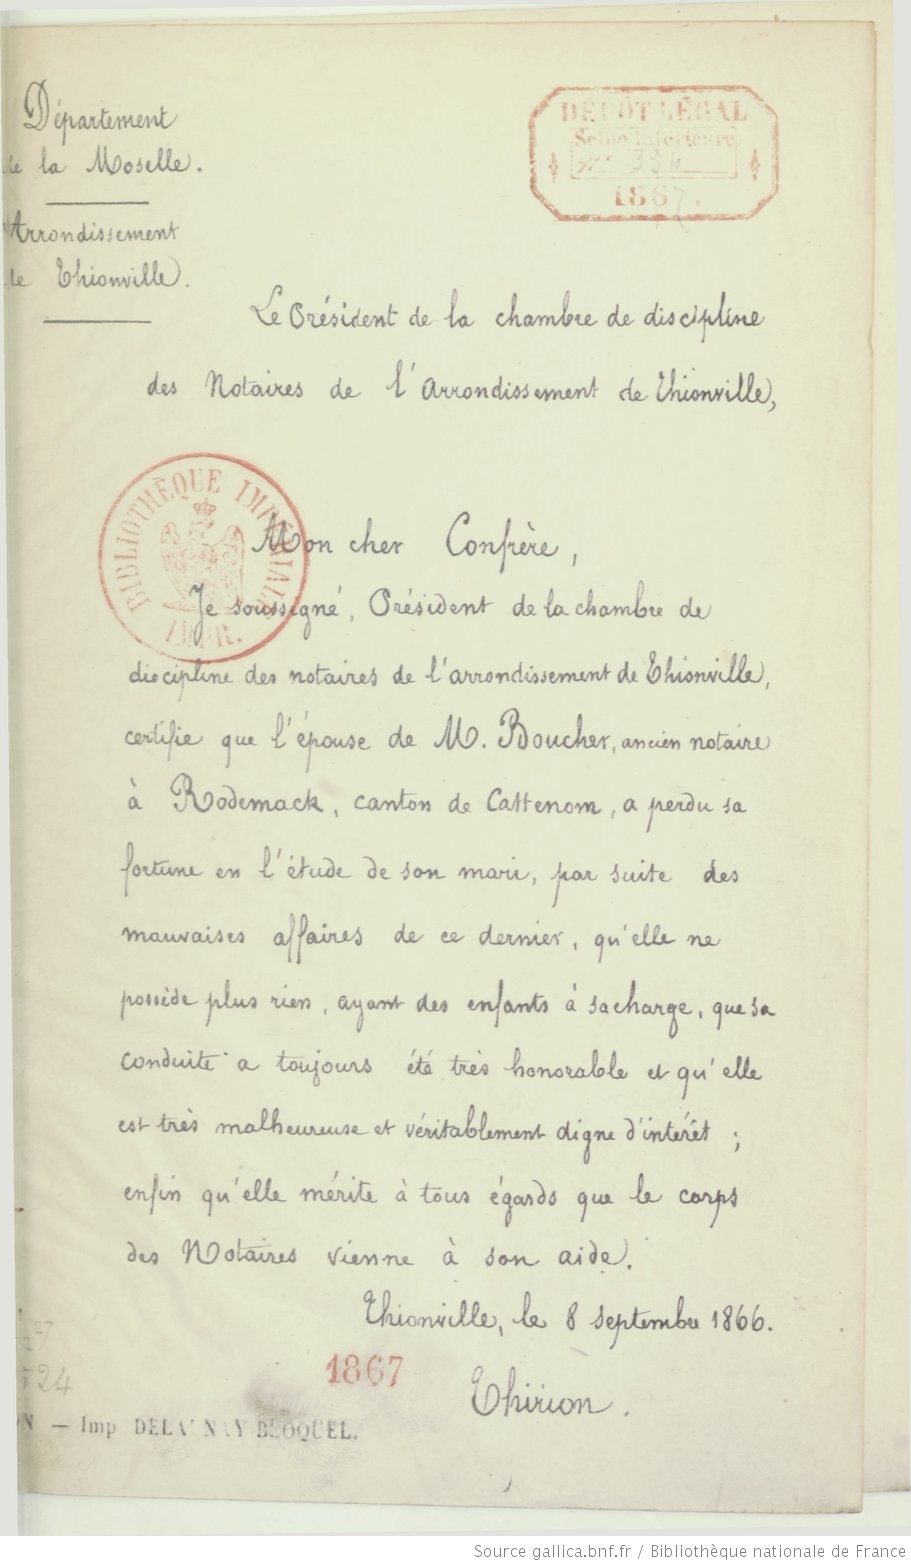 Département
de la Moselle.
Arrondissement
de Thionville.
DÉPÔT LÉGAL
Seine Inférieure
1867.
Le Président de la chambre de discipline
des Notaires de l'Arrondissement de Thionville,
BIBLIOTHÈQUE IMPÉRIALE
IMPR.
Mon cher Confrère,
Je soussigné, Président de la chambre de
discipline des notaires de l'arrondissement de Thionville,
certifie que l'épouse de M. Boucher, ancien notaire
à Rodemack, canton de Cattenom, a perdu sa
fortune en l'étude de son mari, par suite des
mauvaises affaires de ce dernier, qu'elle ne
possède plus rien, ayant des enfants à sa charge, que sa
conduite a toujours été très honorable et qu'elle
est très malheureuse et véritablement digne d'intérêt ;
enfin qu'elle mérite à tous égards que le corps
des Notaires vienne à son aide.
Thionville, le 8 septembre 1866.
1867
Thirion.
24
— Imp DELAUNAY BLOQUEL.
Source gallica.bnf.fr / Bibliothèque nationale de France